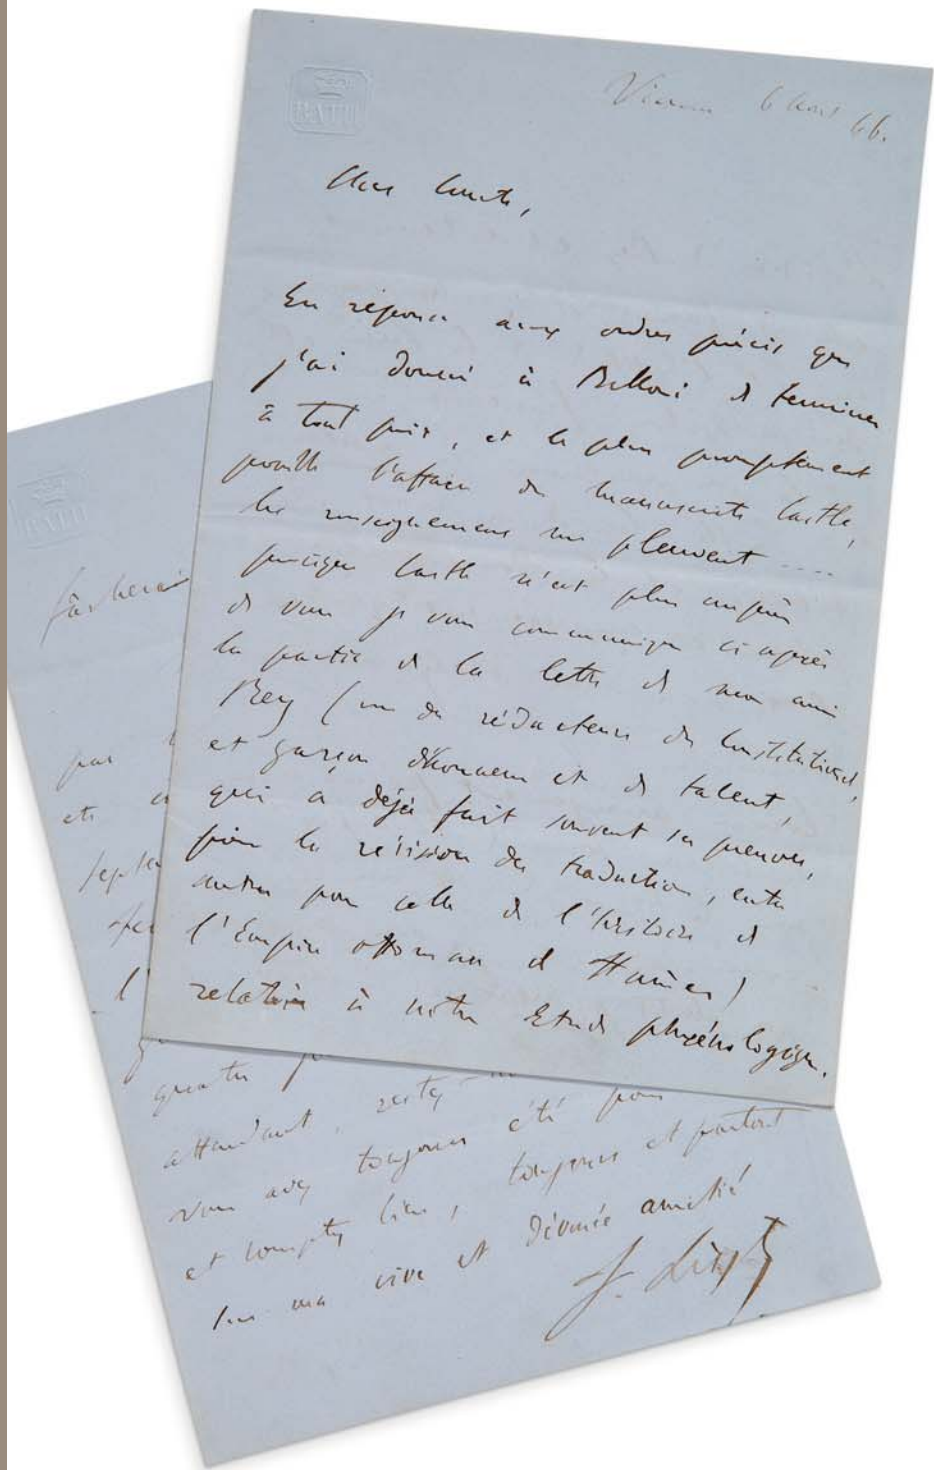 BATH
6 46.
En réponse aux ordres précis que
j'ai donné à Belloni de terminer
à tout prix, et le plus promptement
possible l'affaire du manuscrit Castle,
les renseignemens me pleuvent ....
puisque Castle n'est plus auprès
de vous je vous communique ci après
la partie de la lettre de mon ami
Rey (un des rédacteurs du Constitutionnel,
et garçon d'honneur et de talent,
qui a déjà fait souvent ses preuves,
pour la révision des traductions, entre
autres pour celle de l'histoire de
l'Empire ottoman de Hamer)
relative à notre Etude phrénologique.
BATH
par
quatre
attendant, restez
vous avez toujours été pour
et comptez bien, toujours et partout
sur ma vive et dévouée amitié
F. Liszt